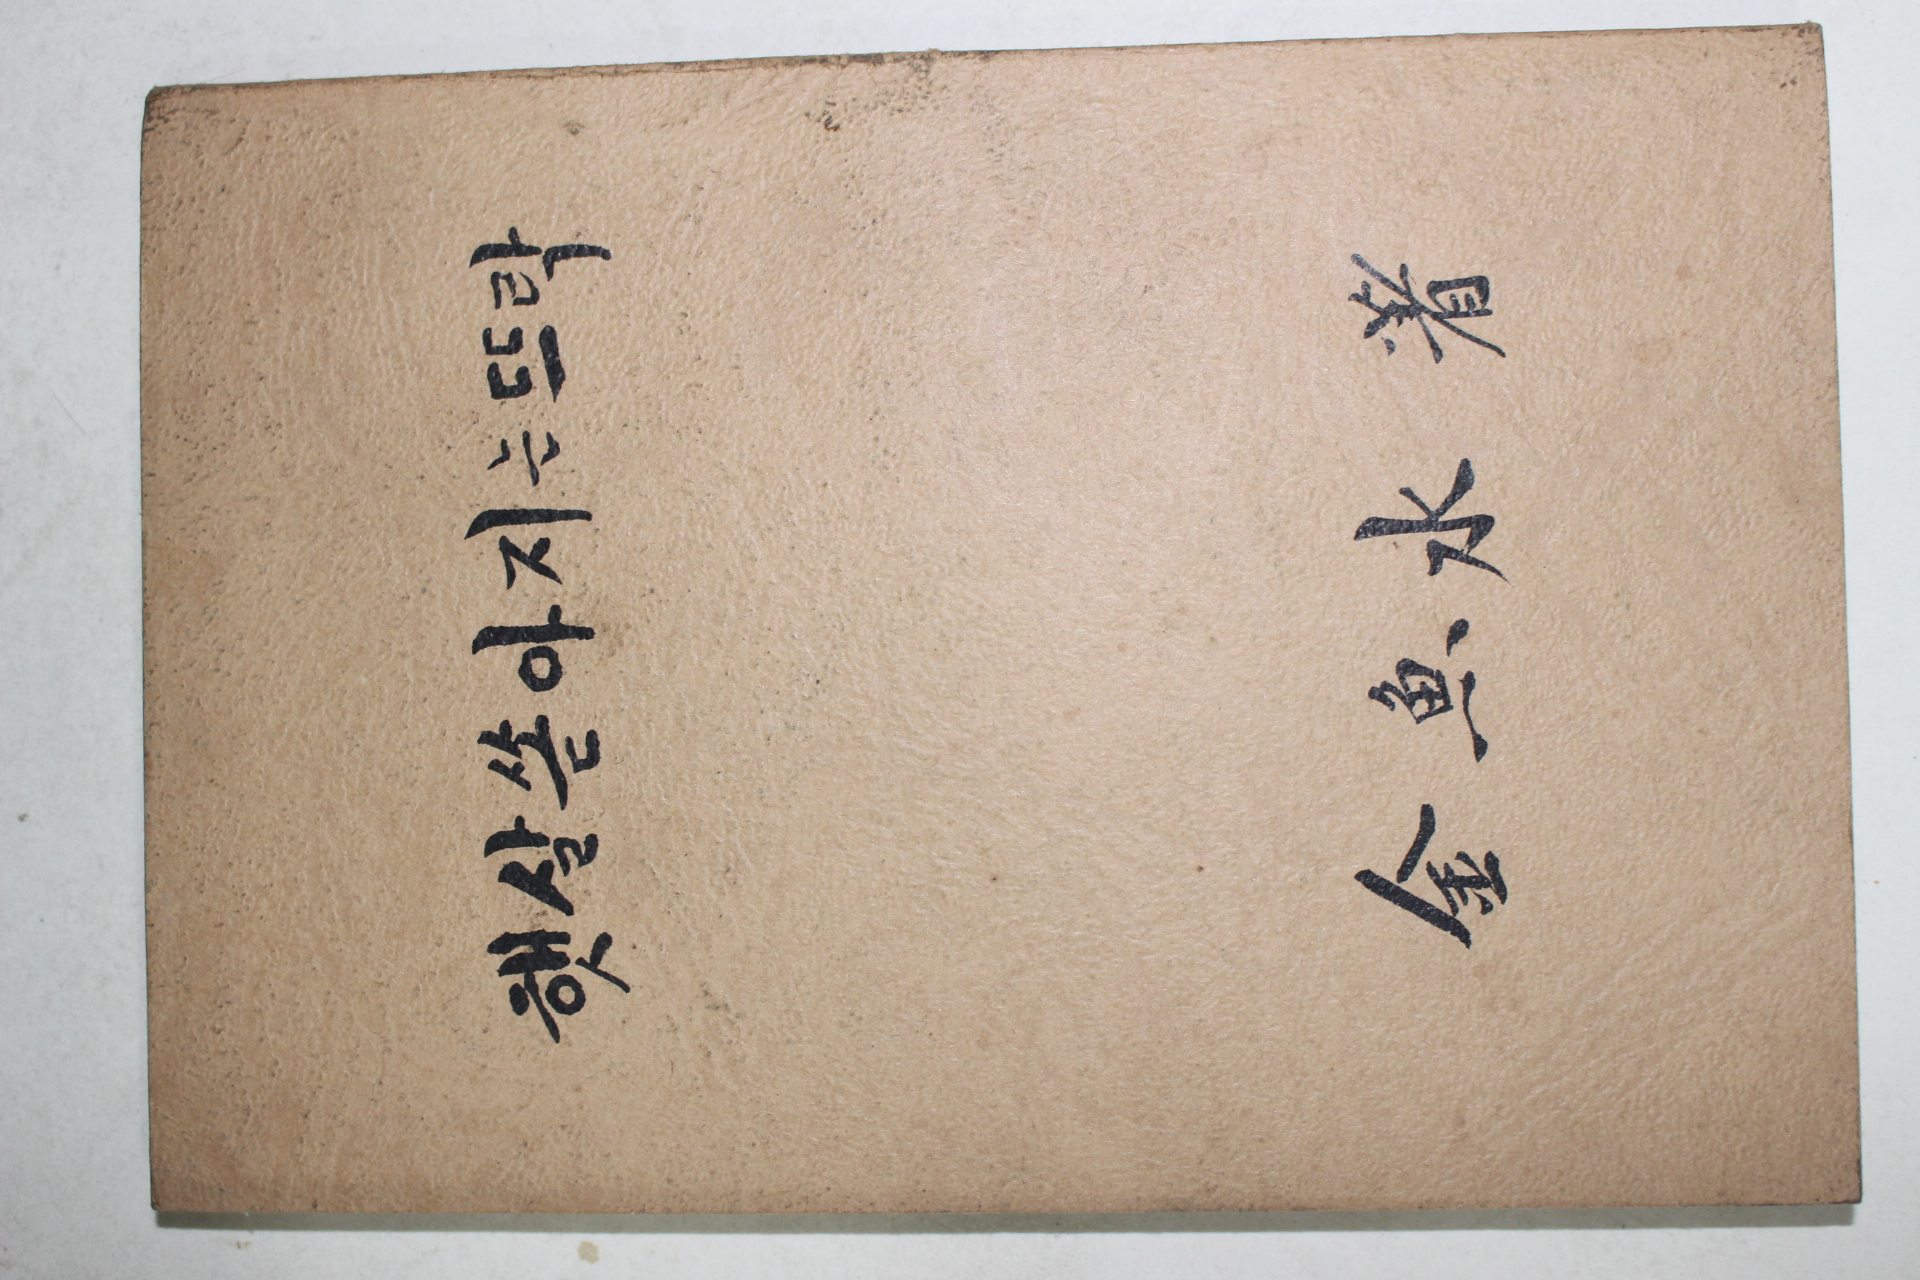 햇살쏟아지는뜨락
金魚水 著